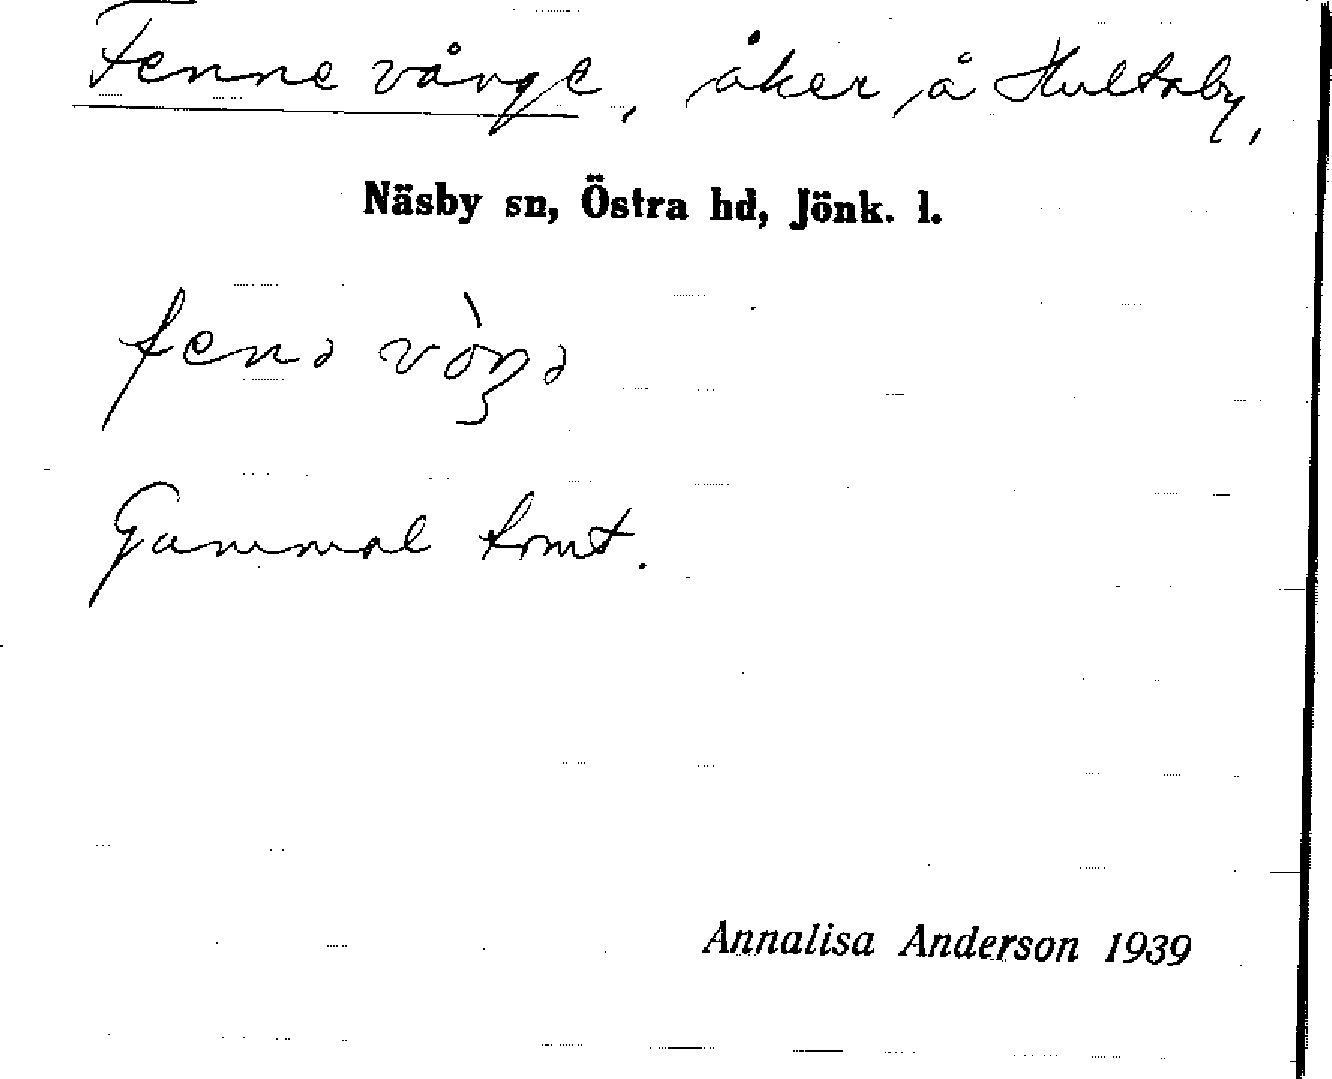 Fenne vånge, åker å Hultaby,
Näsby sn, Östra hd, Jönk. l.
fenə vòŋə
Gammal tomt.
Annalisa Anderson 1939